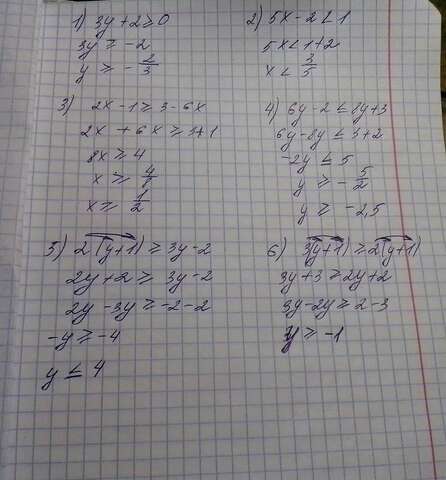 1) 3y + 2 ≥ 0
3y ≥ -2
y ≥ - 2/3
2) 5x - 2 < 1
5x < 1 + 2
x < 3/5
3) 2x - 1 ≥ 3 - 6x
2x + 6x ≥ 3 + 1
8x ≥ 4
x ≥ 4/8
x ≥ 1/2
4) 6y - 2 ≤ 8y + 3
6y - 8y ≤ 3 + 2
-2y ≤ 5
y ≥ - 5/2
y ≥ -2,5
5) 2 (y+1) ≥ 3y - 2
2y + 2 ≥ 3y - 2
2y - 3y ≥ -2 - 2
-y ≥ -4
y ≤ 4
6) 3(y+1) ≥ 2(y+1)
3y + 3 ≥ 2y + 2
3y - 2y ≥ 2 - 3
y ≥ -1